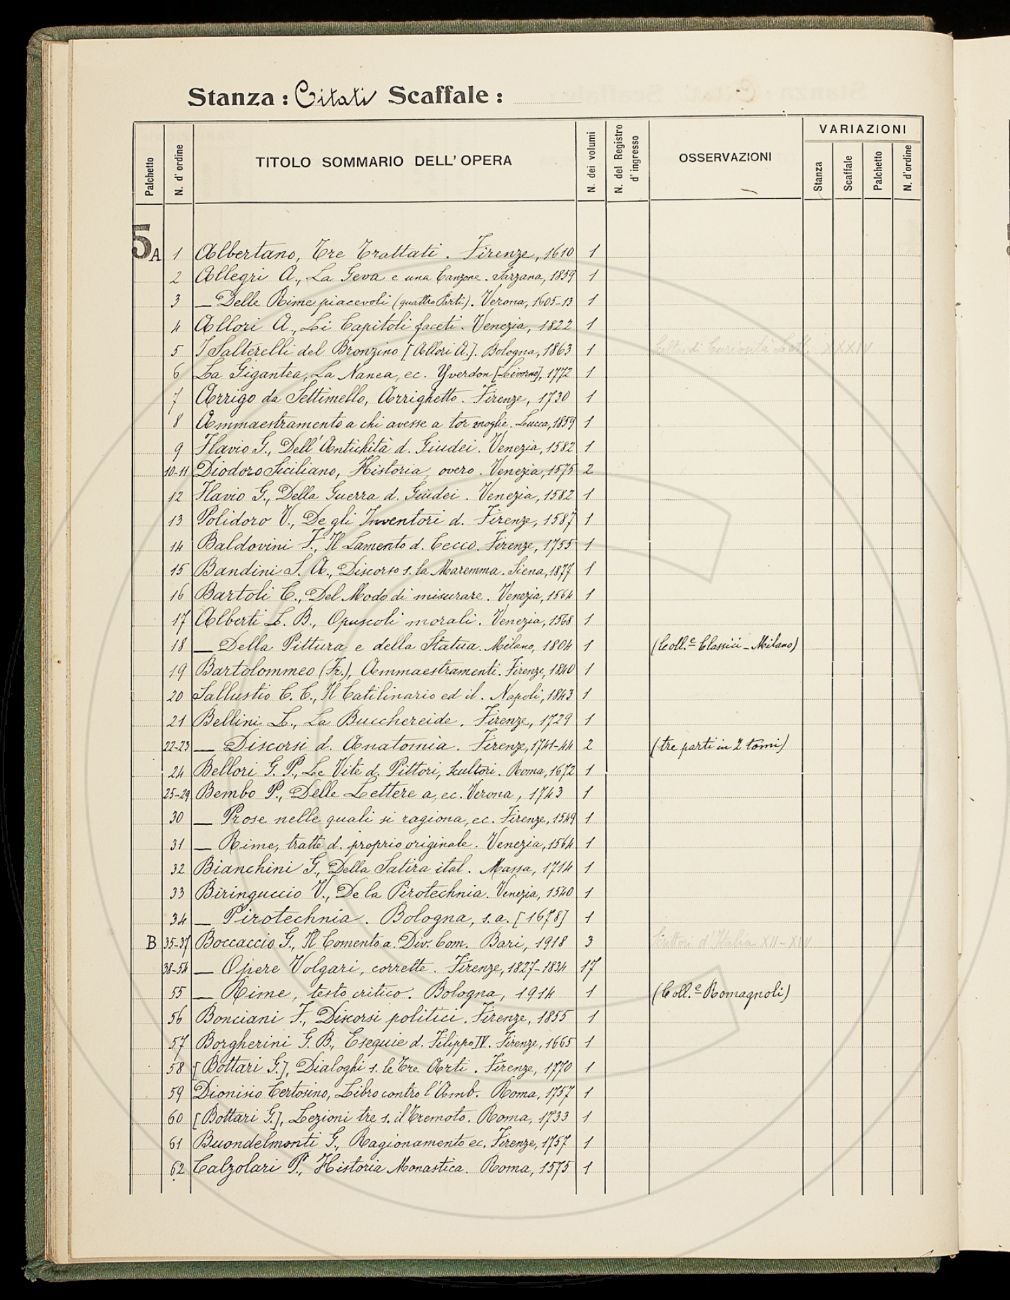 Stanza: Citati Scaffale:
Palchetto N. d' ordine TITOLO SOMMARIO DELL' OPERA N. dei volumi N. del Registro d' ingresso OSSERVAZIONI VARIAZIONI
Stanza Scaffale Palchetto N. d'ordine
5A 1 Albertano, Tre Trattati. Firenze, 1610 1
2 Allegri A., La Geva e una Canzone. Sarzana, 1859 1
3 — Delle Rime piacevoli (quattro Parti). Verona, 1605-13 1
4 Allori A., Li Capitoli faceti. Venezia, 1822 1
5 I Salterelli del Bronzino [Allori A.]. Bologna, 1863 1 XXXIV
6 La Gigantea, La Nanea, ec. Yverdon [Livorno], 1772 1
7 Arrigo da Settimello, Arrighetto. Firenze, 1730 1
8 Ammaestramento a chi avesse a tor moglie. Lucca, 1859 1
9 Flavio G., Dell'Antichità d. Giudei. Venezia, 1582 1
10-11 Diodoro Siciliano, Historia, overo. Venezia, 1575 2
12 Flavio G., Della Guerra d. Giudei. Venezia, 1582 1
13 Polidoro V., De gli Inventori d. Firenze, 1587 1
14 Baldovini F., Il Lamento d. Cecco. Firenze, 1755 1
15 Bandini S. A., Discorso s. la Maremma. Siena, 1877 1
16 Bartoli C., Del Modo di misurare. Venezia, 1564 1
17 Alberti L. B., Opuscoli morali. Venezia, 1568 1
18 — Della Pittura e della Statua. Milano, 1804 1 (Coll.e Classici - Milano)
19 Bartolommeo (Fr.), Ammaestramenti. Firenze, 1840 1
20 Sallustio C. C., Il Catilinario ed il. Napoli, 1843 1
21 Bellini L., La Bucchereide. Firenze, 1729 1
22-23 — Discorsi d. Anatomia. Firenze, 1741-44 2 (tre parti in 2 tomi)
24 Bellori G. P., Le Vite d. Pittori, Scultori. Roma, 1672 1
25-29 Bembo P., Delle Lettere a, ec. Verona, 1743
30 — Prose nelle quali si ragiona, ec. Firenze, 1549 1
31 — Rime, tratte d. proprio originale. Venezia, 1564 1
32 Bianchini G., Della Satira ital. Massa, 1714 1
33 Biringuccio V., De la Pirotechnia. Venezia, 1540 1
34 — Pirotechnia. Bologna, s. a. [1678] 1
B 35-37 Boccaccio G., Il Comento a. Div. Com. Bari, 1918 3 Scrittori d'Italia XII-XIV
38-54 — Opere Volgari, corrette. Firenze, 1827-1834 17
55 — Rime, testo critico. Bologna, 1914 1 (Coll.e Romagnoli)
56 Bonciani F., Discorsi politici. Firenze, 1855 1
57 Borgherini G. B., Esequie d. Filippo IV. Firenze, 1665 1
58 [Bottari G.], Dialoghi s. le tre Arti. Firenze, 1770 1
59 Dionisio Certosino, Libro contro l'Amb. Roma, 1757 1
60 [Bottari G.], Lezioni tre s. il Tremoto. Roma, 1733 1
61 Buondelmonti G., Ragionamento ec. Firenze, 1757 1
62 Calzolari P., Historia Monastica. Roma, 1575 1